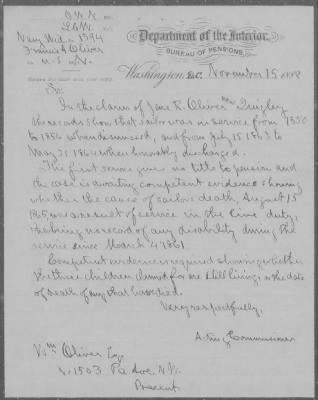 Department of the Interior,
BUREAU OF PENSIONS,
Washington, D.C. November 15, 1888
L.G.W.
Navy Wid. 1394
Francis A Oliver
U.S.N.
Sir:
In the claim of Jane R. Oliver Quigley
the records show that sailor was in service from 1850
to 1856 when dismissed, and from July 15 1863 to
May 31, 1864 when honorably discharged.
The first service gives no title to pension and
the case is awaiting competent evidence showing
whether the cause of sailors death, August 15
1865, was a result of service in the line duty,
there being no record of any disability during the
service since March 4 1861.
Competent evidence is required showing whether
the three children claimed for are still living, or the date
of death of any that have died.
Very respectfully,
Acting Commissioner
Wm Oliver Esq
No 1503 Pa. Ave. N.W.
Present